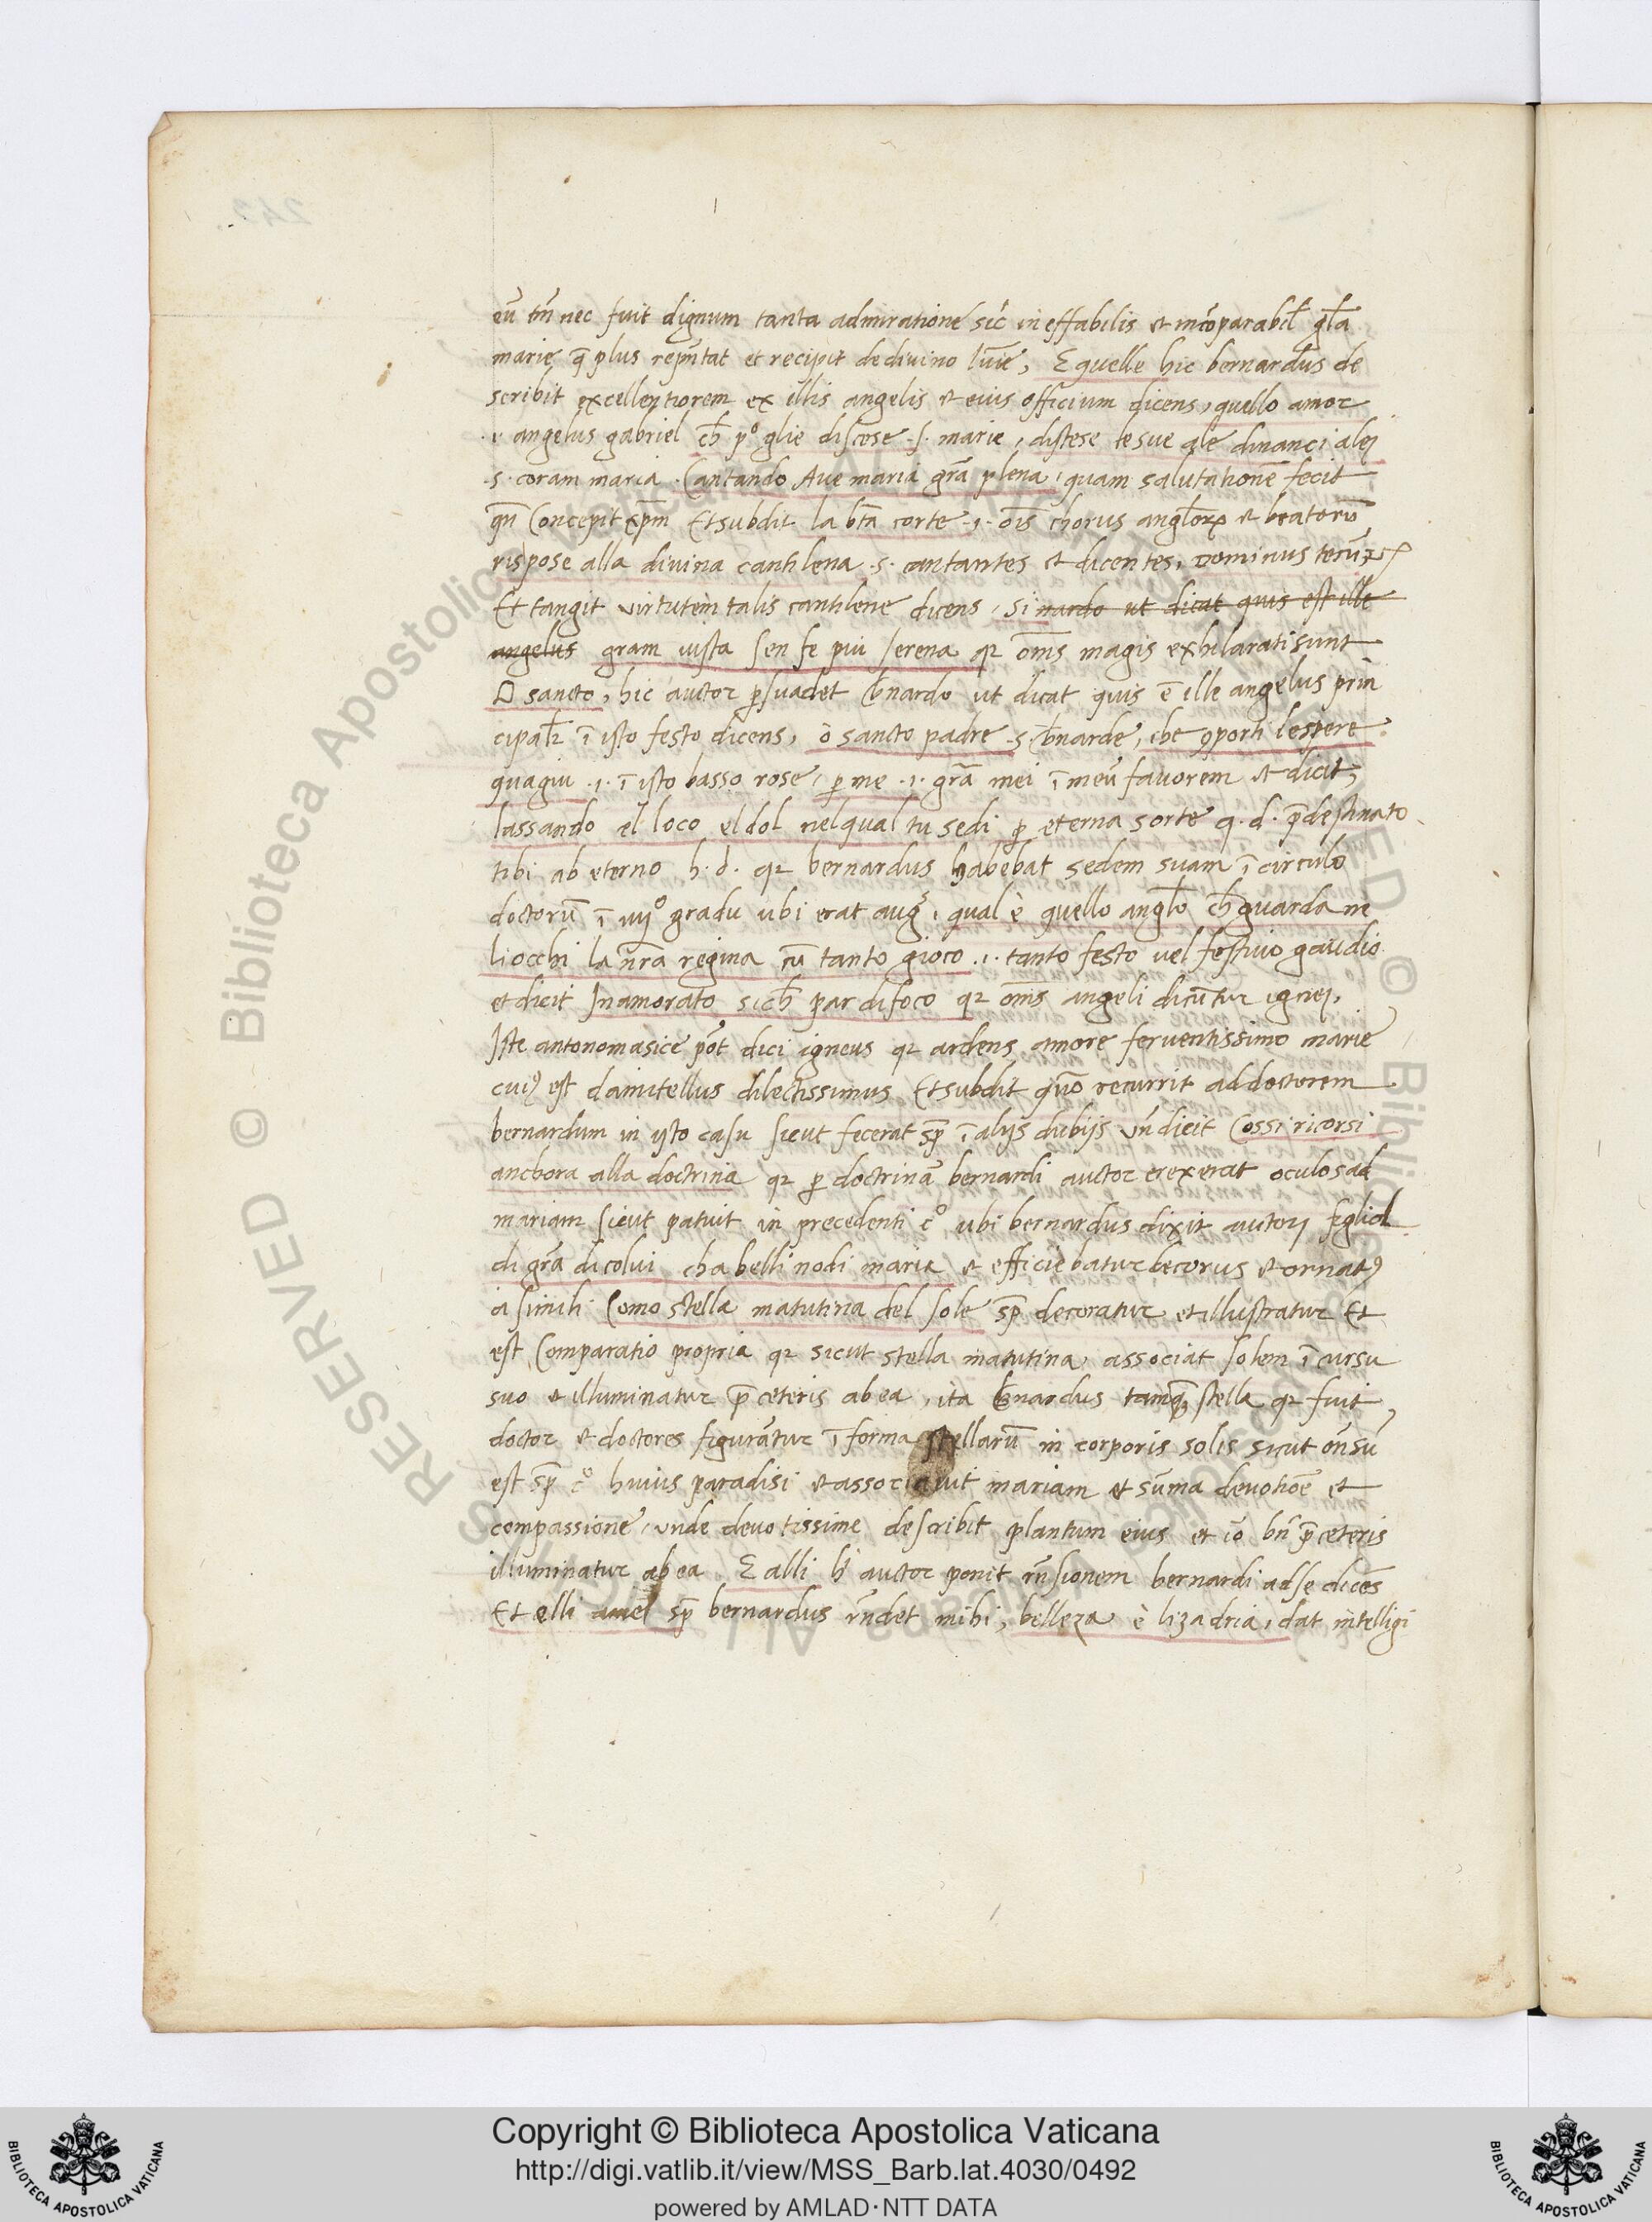 eū tm̄ nec fuit dignum tanta admiratione sic̄ ineffabilis et incōparabil̄ gl̄a
marie q̄ plus repn̄tat et recipit de divino lūīe, E quelle hic bernardus de
scribit excellentiorem ex illis angelis et eius officium dicens, quello amor
.i. angelus gabriel ch̄ pº glie discese .s. marie, distese le sue ale dinançi a lej
.s. coram maria. Cantando Ave maria grā plena, quam salutationē fecit
qn̄ Concepit xp̄m Et subdit la btā corte .i. oīs chorus anglorꝝ et beatorū
rispose alla divina cantilena .s. cantantes et dicentes, Dominus tecū
Et tangit virtutem talis cantilene dicens, si nardo ut dicat quis est ille
angelus gram vista sen fe piu serena qꝛ om̄s magis exhilarati sunt
O sancto, hic auctor ꝑsuadet b̄nardo ut dicat quis ē ille angelus prin
cipal̄r ī isto festo dicens, ò sancto padre .s. b̄narde, che ꝯporti l espere
quagiu .i. ī isto basso rose, ꝑ me .i. grā mei ī meū favorem et dicit,
lassando el loco el dol nel qual tu sedi ꝑ eterna sorte q. d. p̄destinato
tibi ab eterno h. d. qꝛ bernardus habebat sedem suam ī circulo
doctorū ī iijº gradu ubi erat aug̃, qual è quello anglo ch̄ guarda ne
li occhi la nr̄a regina cū tanto gioco .i. tanto festo vel festivo gaudio
et dicit Inamorato sich̄ par di foco qꝛ om̄s angeli dicūtur ignej,
Iste antonomasice pōt dici igneus qꝛ ardens amore ferventissimo marie
cuiꝰ est damitellus dilectissimus Et subdit quō recurrit ad doctorem
bernardum in isto casu sicut fecerat sp̄ ī alijs dubijs un̄ dicit Cossi ricorsi
anchora alla doctrina qꝛ ꝑ doctrinā bernardi auctor erexerat oculos ad
mariam sicut patuit in precedenti cº ubi bernardus dixit auctorj figliol
di grā di colui cha belli nodi maria et efficiebatur decorus et ornatꝰ
a simili Como stella matutina del sole sp̄ decoratur et illustratur Et
est Comparatio propria qꝛ sicut stella matutina, associat solem ī cursu
suo et illuminatur p̄ ceteris ab ea, ita b̄nardus tamqꝫ stella qꝛ fuit
doctor et doctores figurātur ī forma stellarū in corporis solis sicut on̄sū
est sp̄ cº huius paradisi et associavit mariam et sūma devotiōe et
compassione, unde devotissime describit plantum eius et iō bn̄ p̄ ceteris
illuminatur ab ea E alli h̄ auctor ponit rn̄sionem bernardi ad se dicēs
Et elli amel sp̄ bernardus rn̄det mihi, belleza è lizadria, dat intelligi
Copyright © Biblioteca Apostolica Vaticana
http://digi.vatlib.it/view/MSS_Barb.lat.4030/0492
powered by AMLAD·NTT DATA
BIBLIOTECA APOSTOLICA VATICANA
BIBLIOTECA APOSTOLICA VATICANA